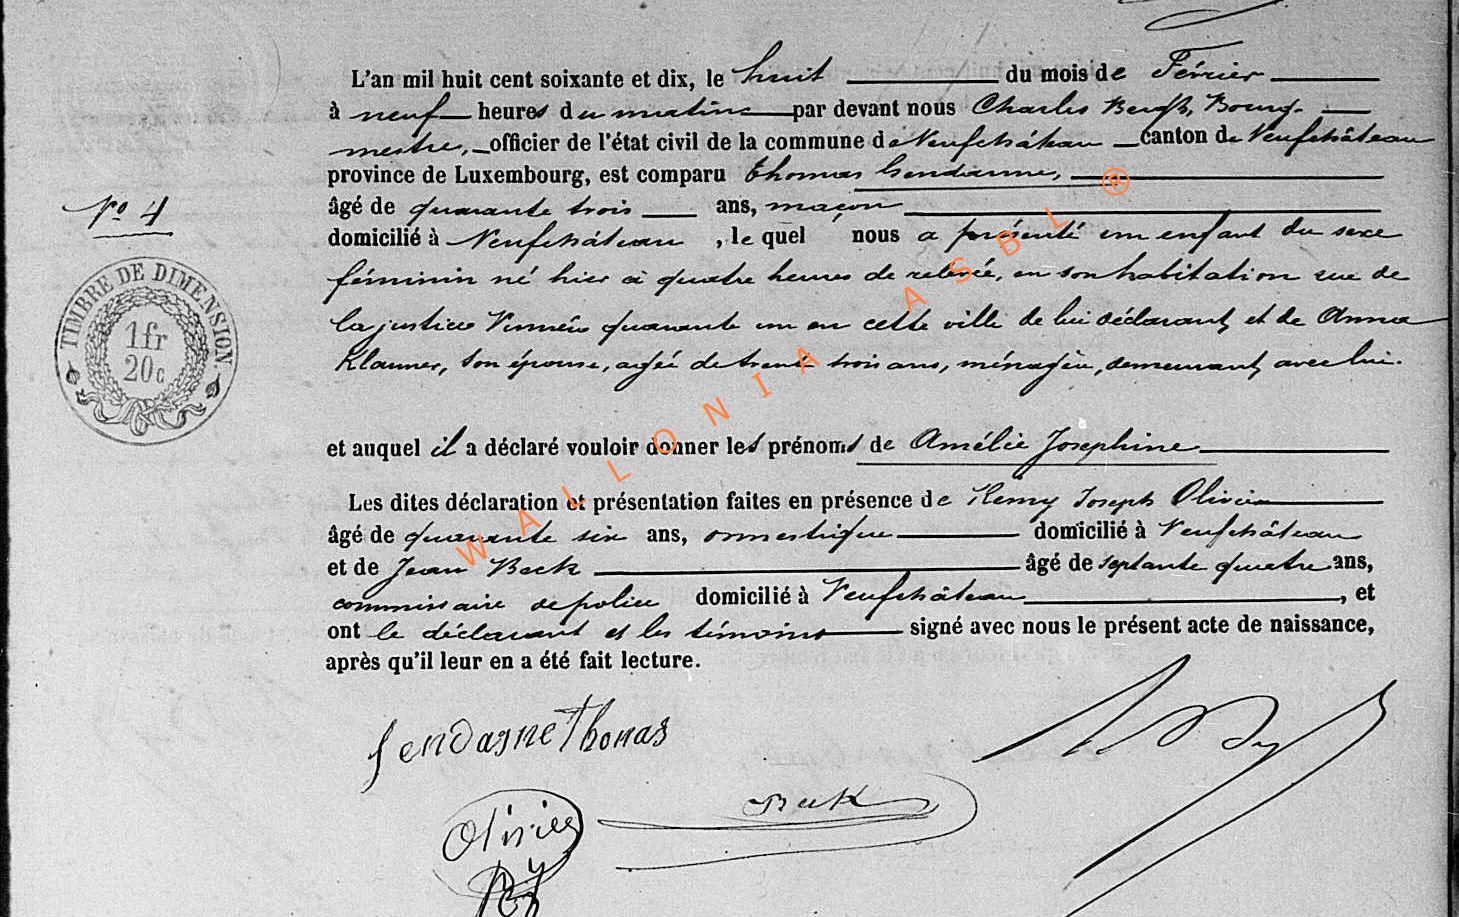 L'an mil huit cent soixante et dix, le huit du mois de Février
à neuf heures du matin par devant nous Charles Bergh, Bourg-
mestre, officier de l'état civil de la commune de Neufchâteau Canton de Neufchâteau
province de Luxembourg, est comparu Thomas Gendarme,
N° 4
âgé de quarante trois ans, maçon
domicilié à Neufchâteau, lequel nous a présenté un enfant du sexe
féminin né hier à quatre heures de relevée, en son habitation rue de
la justice Numéro quarante un en cette ville de lui déclarant, et de Anna
son épouse, agée de trente trois ans, ménagère, demeurant avec lui.
TIMBRE DE DIMENSION.
1 fr
20 c
et auquel il a déclaré vouloir donner les prénoms de Amélie Josephine
Les dites déclaration et présentation faites en présence de Remy Joseph Olivier
âgé de quarante six ans, domestique domicilié à Neufchâteau
et de Jean Beck âgé de septante quatre ans,
commissaire de police domicilié à Neufchâteau, et
ont le déclarant et les témoins signé avec nous le présent acte de naissance,
après qu'il leur en a été fait lecture.
WALLONIA ASBL ®
Thomas
Beck
Olivier